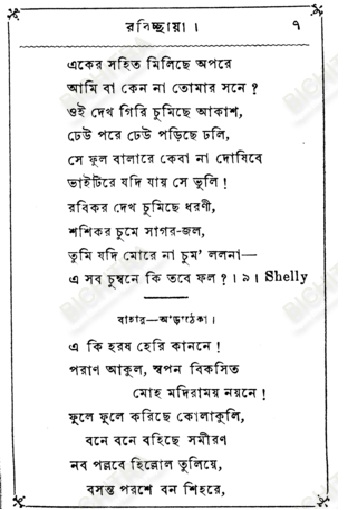 রবিচ্ছায়া।
৭
একের সহিত মিলিছে অপরে
আমি বা কেন না তোমার সনে ?
ওই দেখ গিরি চুমিছে আকাশ,
ঢেউ পরে ঢেউ পড়িছে ঢলি,
সে ফুল বালারে কেবা না দোষিবে
ভাইটিরে যদি যায় সে ভুলি !
রবিকর দেখ চুমিছে ধরণী,
শশিকর চুমে সাগর-জল,
তুমি যদি মোরে না চুম' ললনা—
এ সব চুম্বনে কি তবে ফল ? । ৯ ॥ Shelly
বাহার—আড়াঠেকা।
এ কি হরষ হেরি কাননে !
পরাণ আকুল, স্বপন বিকসিত
মোহ মদিরাময় নয়নে !
ফুলে ফুলে করিছে কোলাকুলি,
বনে বনে বহিছে সমীরণ
নব পল্লবে হিল্লোল তুলিয়ে,
বসন্ত পরশে বন শিহরে,